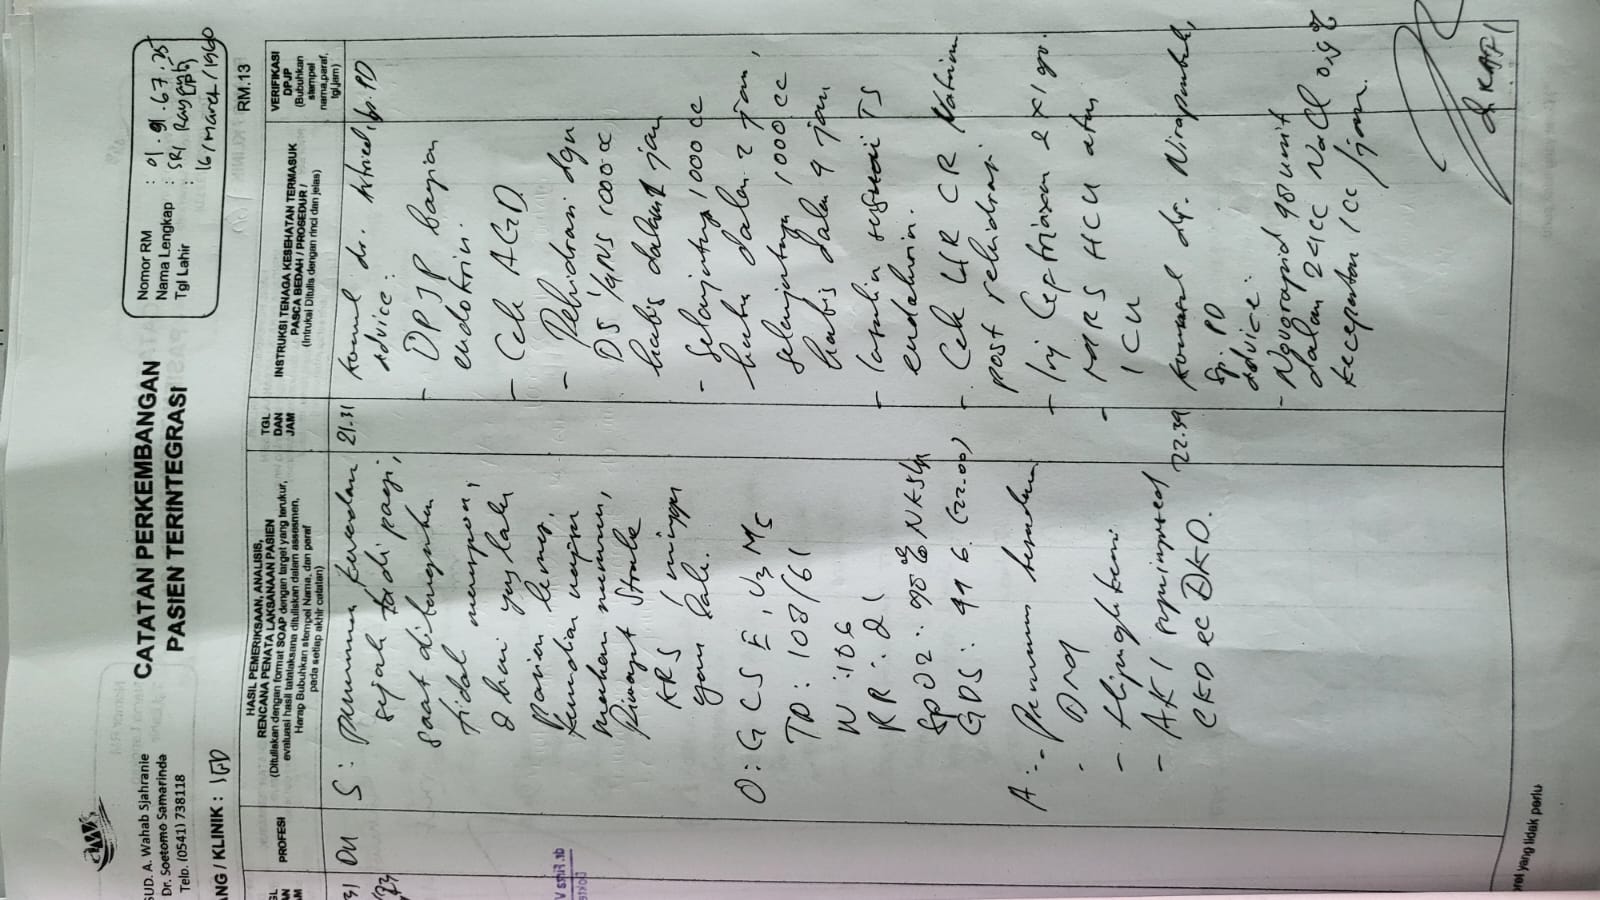 SUD. A. Wahab Sjahranie
Dr. Soetomo Samarinda
Telp. (0541) 738118
CATATAN PERKEMBANGAN
PASIEN TERINTEGRASI
Nomor RM : 01.91.67.25
Nama Lengkap : SRI
Tgl Lahir : 16/March/1960
ANG / KLINIK : IGD
RM.13
PROFESI
HASIL PEMERIKSAAN, ANALISIS,
RENCANA PENATA LAKSANAAN PASIEN
(Dituliskan dengan format SOAP dengan target yang terukur,
evaluasi hasil tatalaksana dituliskan dalam assesmen,
Harap Bubuhkan stempel Nama, dan paraf
pada setiap akhir catatan)
TGL
DAN
JAM
INSTRUKSI TENAGA KESEHATAN TERMASUK
PASCA BEDAH / PROSEDUR /
(Intruksi Ditulis dengan rinci dan jelas)
VERIFIKASI
DPJP
(Bubuhkan
stempel
nama,paraf,
tgl,jam)
DU
S : penurunan kesadaran
sejak tadi pagi,
saat dibangunkan
tidak merespon,
2 hari yang lalu
Pasien lemas,
kemudian napsu
makan menurun,
Riwayat Stroke
KRS 1 minggu
yang lalu.
O : GCS E1V3M5
TD : 108/61
N : 106
RR : 21
SpO2 : 98% NK
GDS : 416 (22.00)
A : - Penurunan kesadaran
- DM
-
- AKI
CKD ec DKD.
21.31
Konsul dr. Sp.PD
advice :
- DPJP bagian
endokrin.
- Cek AGD
- Rehidrasi dgn
D5 1/4NS 1000cc
habis dalam 1 jam
- Selanjutnya 1000cc
habis dalam 2 jam,
selanjutnya 1000cc
habis dalam 4 jam
- Insulin sesuai TS
endokrin.
- Cek UR CR Natrium
post rehidrasi
- Inj Ceftriaxon 2x1 gr.
- MRS HCU atau
ICU
22.39
Konsul dr.
Sp.PD
advice :
- Novorapid 48 unit
dalam 24cc NaCl 0,9%
kecepatan 1cc/jam.